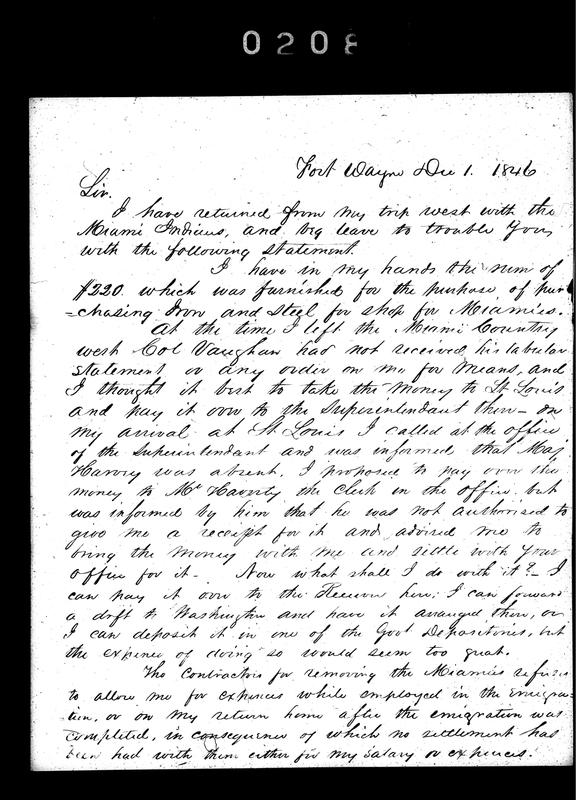 0208
Fort Wayne Dec 1. 1846
Sir.
I have returned from my trip west with the
Miami Indians, and beg leave to trouble you
with the following statement.
I have in my hands the sum of
$220. which was furnished for the purpose of pur
=chasing Iron and Steel for shop for Miamies.
At the time I left the Miami Country
west Col Vaughan had not received his tabular
statement or any order on me for means, and
I thought it best to take the money to St Louis
and pay it over to the Superintendant there - on
my arrival at St. Louis I called at the office
of the Superintendant and was informed that Maj
Harvey was absent. I proposed to pay over the
money to Mr Haverty the Clerk in the office but
was informed by him that he was not authorised to
give me a receipt for it and advised me to
bring the money with me and settle with your
office for it - Now what shall I do with it? - I
can pay it over to the Receiver here; I can forward
a draft to Washington and have it arranged there, or
I can deposit it in one of the Govt Depositories, but
the expence of doing so would seem too great.
The Contractors for removing the Miamies refuse
to allow me for expences while employed in the emigra
tion, or on my return home after the emigration was
completed, in consequence of which no settlement has
been had with them either for my salary or expences.